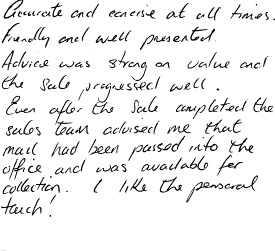 Accurate and concise at all times.
Friendly and well presented.
Advice was strong on value and
the sale progressed well.
Even after the sale completed the
sales team advised me that
mail had been passed into the
office and was available for
collection. I like the personal
touch!